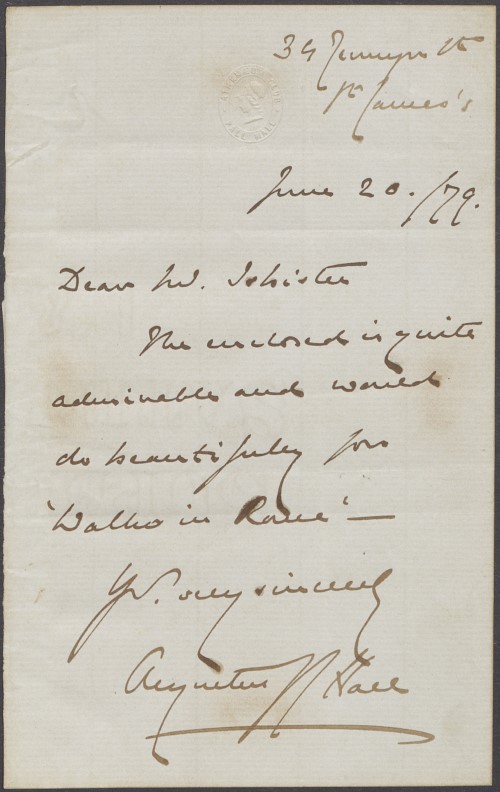 34 Jermyn St
St James's
June 20. /79.
Dear Mr. Isbister
The enclosed is quite
admirable and would
do beautifully for
'Walks in Rome' —
Yrs. very sincerely
Augustus Hare